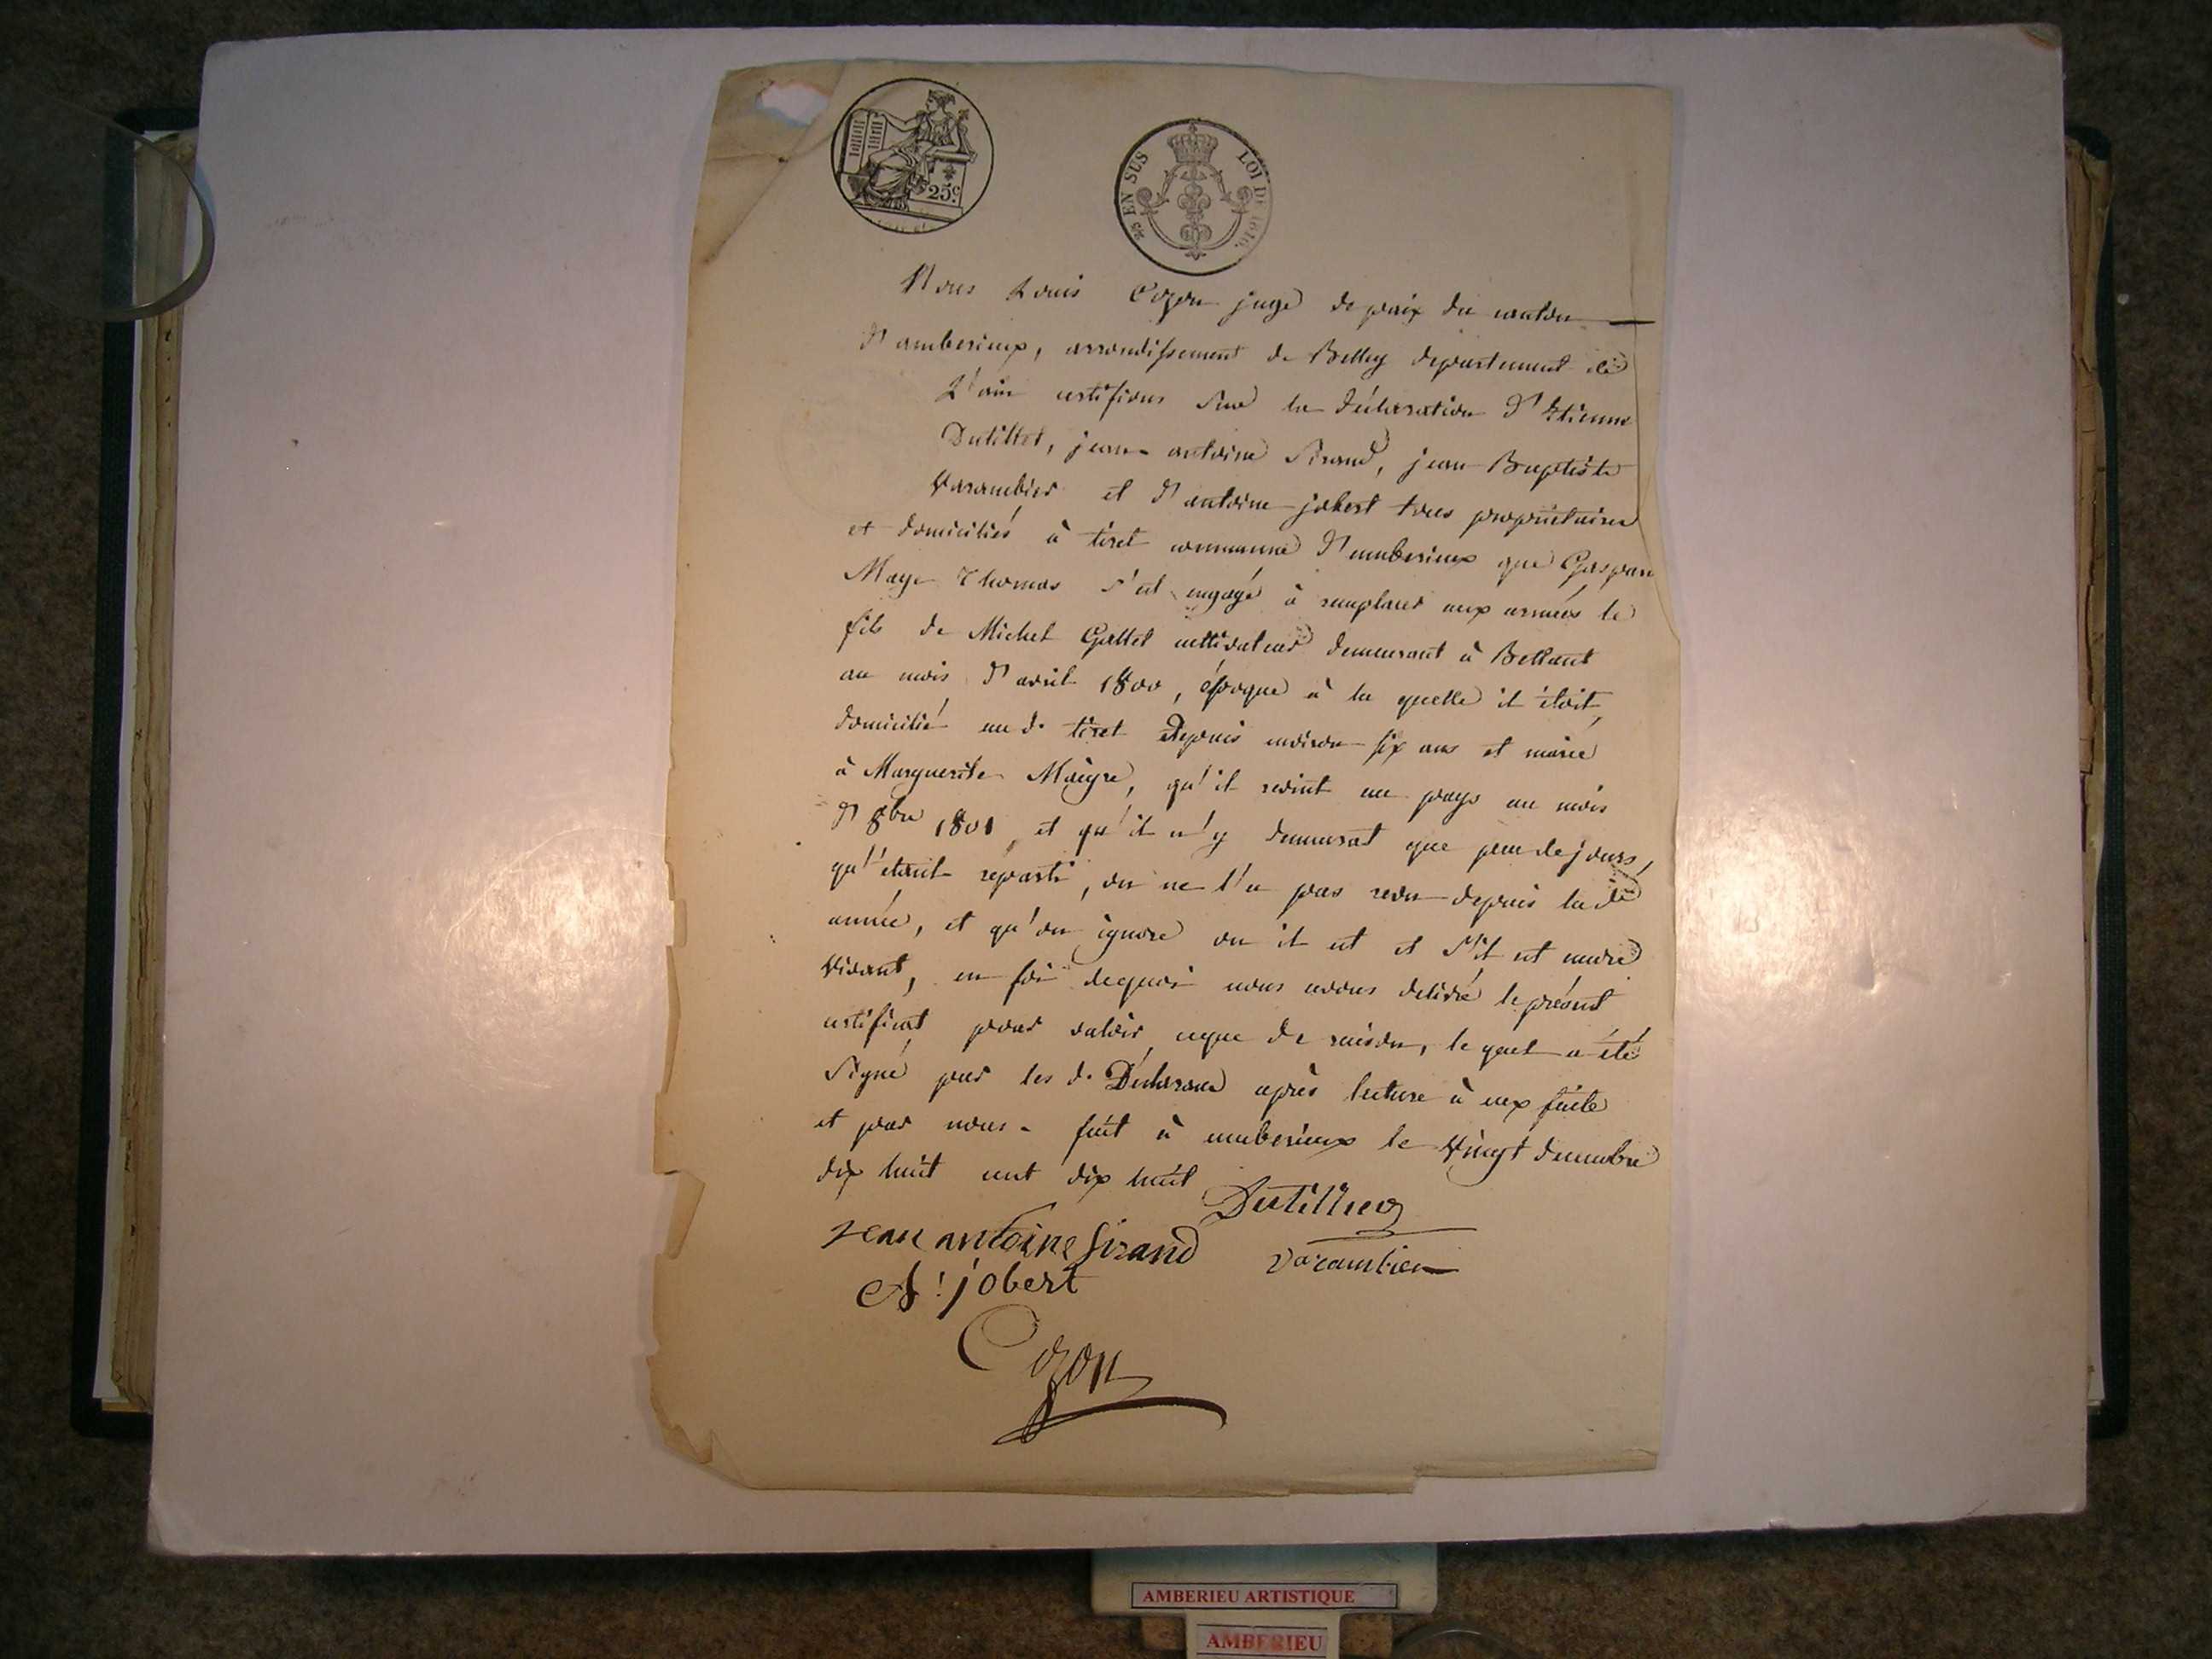 25c.
EN SUS LOI DE 1816.
Nous Louis Cozon juge de paix du canton
d'amberieux, arrondissement de Belley departement de
L'ain certifions sur la déclaration d'Etienne
Dutillet, jean-antoine Sirand, jean-Baptiste
Varambier et d'antoine jobert tous propriétaires
et domiciliés à tiret commune d'amberieux que Gaspard
Maye Thomas s'est engagé à remplacer aux armées le
fils de Michel Gallet cultivateur demeurant à Bettant
au mois d'avril 1800, époque à la quelle il étoit
domicilié au d. tiret depuis environ six ans et marié
à Marguerite Maigre, qu'il revint au pays au mois
d'8bre 1801, et qu'il n'y demeurat que peu de jours,
qu'étant réparti, on ne l'a pas revu depuis la de
année, et qu'on ignore ou il est et s'il est encore
vivant, en foi dequoi nous avons delivré le présent
certificat pour valoir ceque de raison, le quel a été
Signé par les d. Déclarans après lecture à eux faite
et par nous. fait à amberieux le vingt decembre
dix huit cent dix huit
Dutillier
Jean antoine Sirand
varambier
At jobert
Cozon
AMBERIEU ARTISTIQUE
AMBERIEU